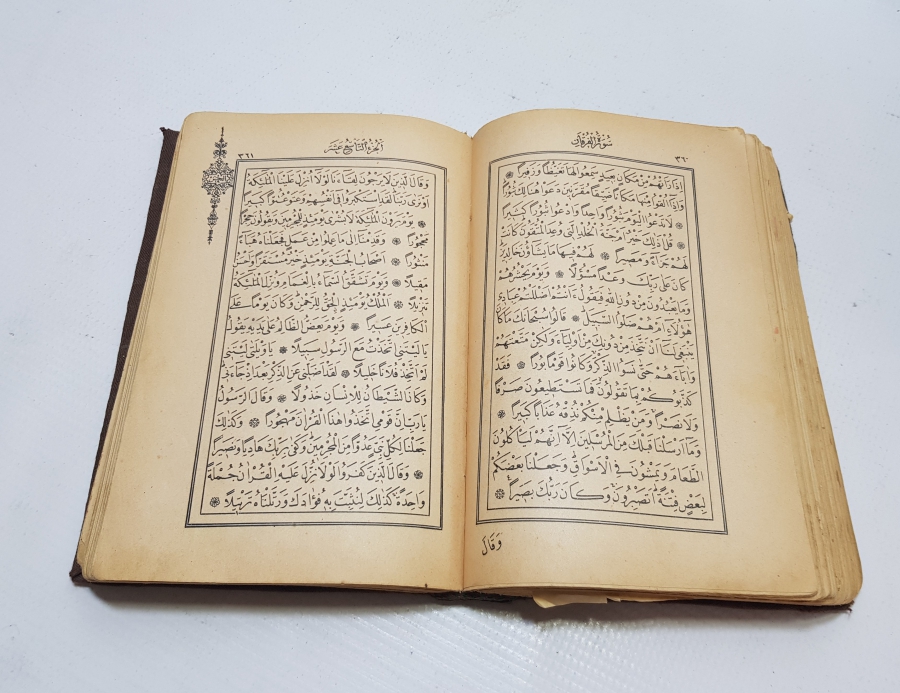 سُورَةُ الْفُرْقَانِ
٣٦٠
اِذَا رَاَتْهُمْ مِنْ مَكَانٍ بَعِيدٍ سَمِعُوا لَهَا تَغَيُّظًا وَزَفِيرًا ❋
وَاِذَا اُلْقُوا مِنْهَا مَكَانًا ضَيِّقًا مُقَرَّنِينَ دَعَوْا هُنَالِكَ ثُبُورًا
❋ لَا تَدْعُوا الْيَوْمَ ثُبُورًا وَاحِدًا وَادْعُوا ثُبُورًا كَثِيرًا
❋ قُلْ اَذٰلِكَ خَيْرٌ اَمْ جَنَّةُ الْخُلْدِ الَّتِي وُعِدَ الْمُتَّقُونَ كَانَتْ
لَهُمْ جَزَاءً وَمَصِيرًا ❋ لَهُمْ فِيهَا مَا يَشَاؤُنَ خَالِدِينَ
كَانَ عَلٰى رَبِّكَ وَعْدًا مَسْؤُلًا ❋ وَيَوْمَ يَحْشُرُهُمْ
وَمَا يَعْبُدُونَ مِنْ دُونِ اللّٰهِ فَيَقُولُ ءَاَنْتُمْ اَضْلَلْتُمْ عِبَادِي
هٰؤُلَاءِ اَمْ هُمْ ضَلُّوا السَّبِيلَ ❋ قَالُوا سُبْحَانَكَ مَا كَانَ
يَنْبَغِي لَنَا اَنْ نَتَّخِذَ مِنْ دُونِكَ مِنْ اَوْلِيَاءَ وَلٰكِنْ مَتَّعْتَهُمْ
وَاٰبَاءَهُمْ حَتّٰى نَسُوا الذِّكْرَ وَكَانُوا قَوْمًا بُورًا ❋ فَقَدْ
كَذَّبُوكُمْ بِمَا تَقُولُونَ فَمَا تَسْتَطِيعُونَ صَرْفًا
وَلَا نَصْرًا وَمَنْ يَظْلِمْ مِنْكُمْ نُذِقْهُ عَذَابًا كَبِيرًا ❋
وَمَا اَرْسَلْنَا قَبْلَكَ مِنَ الْمُرْسَلِينَ اِلَّا اِنَّهُمْ لَيَأْكُلُونَ
الطَّعَامَ وَيَمْشُونَ فِي الْاَسْوَاقِ وَجَعَلْنَا بَعْضَكُمْ
لِبَعْضٍ فِتْنَةً اَتَصْبِرُونَ وَكَانَ رَبُّكَ بَصِيرًا ❋
وَقَالَ
اَلْجُزْءُ التَّاسِعُ عَشَرَ
٣٦١
وَقَالَ الَّذِينَ لَا يَرْجُونَ لِقَاءَنَا لَوْلَا اُنْزِلَ عَلَيْنَا الْمَلٰئِكَةُ
اَوْ نَرٰى رَبَّنَا لَقَدِ اسْتَكْبَرُوا فِي اَنْفُسِهِمْ وَعَتَوْ عُتُوًّا كَبِيرًا
❋ يَوْمَ يَرَوْنَ الْمَلٰئِكَةَ لَا بُشْرٰى يَوْمَئِذٍ لِلْمُجْرِمِينَ وَيَقُولُونَ حِجْرًا
مَحْجُورًا ❋ وَقَدِمْنَا اِلٰى مَا عَمِلُوا مِنْ عَمَلٍ فَجَعَلْنَاهُ هَبَاءً
مَنْثُورًا ❋ اَصْحَابُ الْجَنَّةِ يَوْمَئِذٍ خَيْرٌ مُسْتَقَرًّا وَاَحْسَنُ
مَقِيلًا ❋ وَيَوْمَ تَشَقَّقُ السَّمَاءُ بِالْغَمَامِ وَنُزِّلَ الْمَلٰئِكَةُ
تَنْزِيلًا ❋ اَلْمُلْكُ يَوْمَئِذٍ الْحَقُّ لِلرَّحْمٰنِ وَكَانَ يَوْمًا عَلَى
الْكَافِرِينَ عَسِيرًا ❋ وَيَوْمَ يَعَضُّ الظَّالِمُ عَلٰى يَدَيْهِ يَقُولُ
يَا لَيْتَنِي اتَّخَذْتُ مَعَ الرَّسُولِ سَبِيلًا ❋ يَا وَيْلَتٰى لَيْتَنِي
لَمْ اَتَّخِذْ فُلَانًا خَلِيلًا ❋ لَقَدْ اَضَلَّنِي عَنِ الذِّكْرِ بَعْدَ اِذْ جَاءَنِي
وَكَانَ الشَّيْطَانُ لِلْاِنْسَانِ خَذُولًا ❋ وَقَالَ الرَّسُولُ
يَا رَبِّ اِنَّ قَوْمِي اتَّخَذُوا هٰذَا الْقُرْاٰنَ مَهْجُورًا ❋ وَكَذٰلِكَ
جَعَلْنَا لِكُلِّ نَبِيٍّ عَدُوًّا مِنَ الْمُجْرِمِينَ وَكَفٰى بِرَبِّكَ هَادِيًا وَنَصِيرًا
❋ وَقَالَ الَّذِينَ كَفَرُوا لَوْلَا نُزِّلَ عَلَيْهِ الْقُرْاٰنُ جُمْلَةً
وَاحِدَةً كَذٰلِكَ لِنُثَبِّتَ بِهِ فُؤَادَكَ وَرَتَّلْنَاهُ تَرْتِيلًا ❋